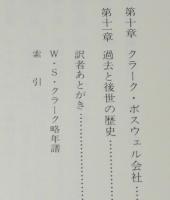 第十章 クラーク・ボスウェル会社……
第十一章 過去と後世の歴史……
訳者あとがき……
W・S・クラーク略年譜
索引